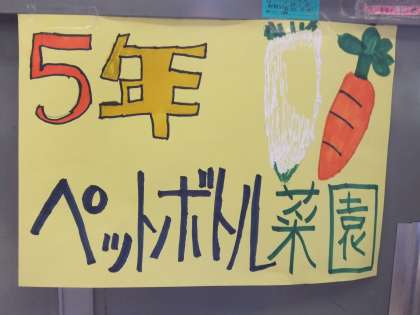 5年
ペットボトル菜園